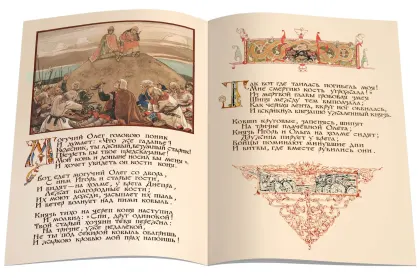 Могучий Олег головою поник
И думает: "Что же гаданье?
Кудесник, ты лживый, безумный старик!
Презреть бы твое предсказанье!
Мой конь и доныне носил бы меня".
И хочет увидеть он кости коня.
Вот едет могучий Олег со двора,
С ним Игорь и старые гости,
И видят – на холме, у брега Днепра,
Лежат благородные кости;
Их моют дожди, засыпает их пыль,
И ветер волнует над ними ковыль.
Князь тихо на череп коня наступил
И молвил: "Спи, друг одинокий!
Твой старый хозяин тебя пережил:
На тризне, уже недалекой,
Не ты под секирой ковыль обагришь
И жаркою кровью мой прах напоишь!
Так вот где таилась погибель моя!
Мне смертию кость угрожала!"
Из мертвой главы гробовая змия
Шипя между тем выползала;
Как черная лента, вкруг ног обвилась,
И вскрикнул внезапно ужаленный князь.
Ковши круговые, запенясь, шипят
На тризне плачевной Олега;
Князь Игорь и Ольга на холме сидят;
Дружина пирует у брега;
Бойцы поминают минувшие дни
И битвы, где вместе рубились они.